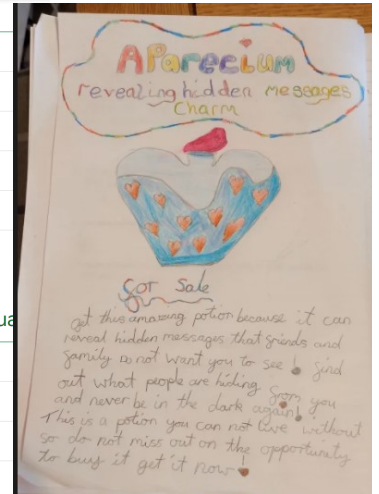 Aparecium
revealing hidden messages
Charm
for Sale
get this amazing potion because it can
reveal hidden messages that friends and
family do not want you to see! find
out what people are hiding from you
and never be in the dark again!
This is a potion you can not live without
so do not miss out on the opportunity
to buy it get it now!
ua